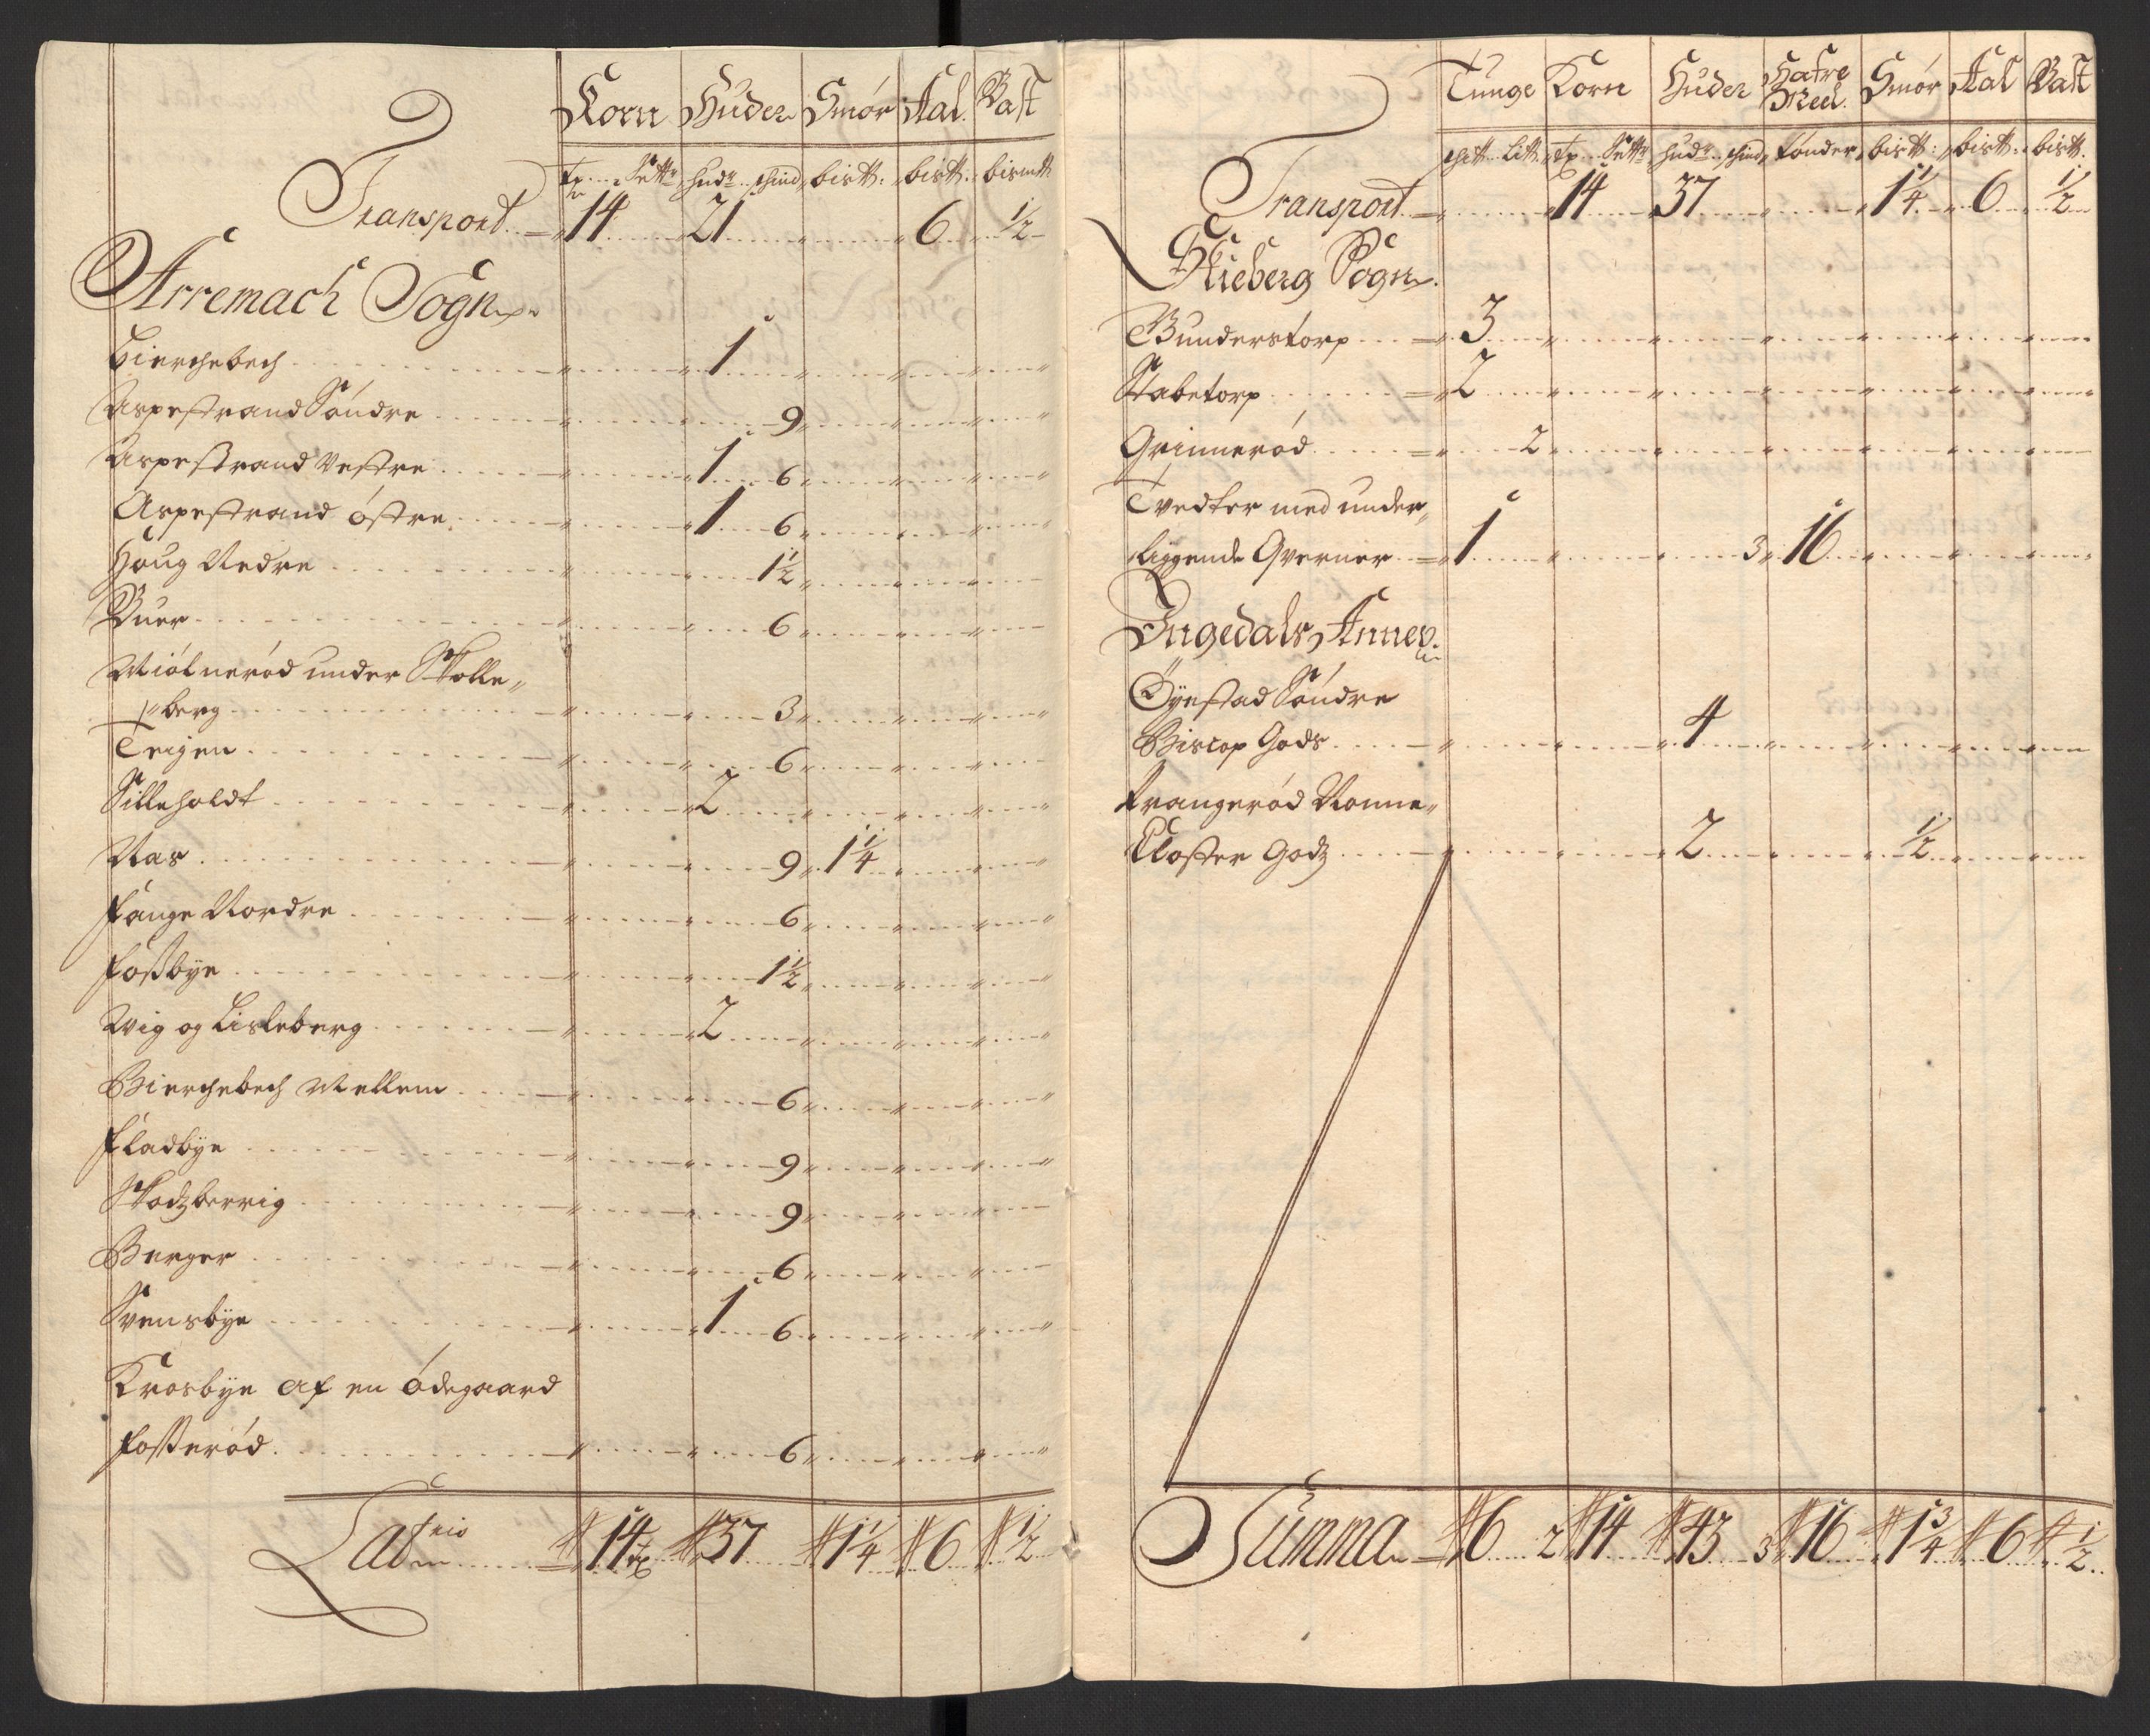 Korn Huder Smör Aal. Bast
Tr Sett hudr schind bis℔: bis℔. bism℔
Transport 14 21 6 ½
Arremach Sogn
Bierchebech 1
Aspestrand Söndre 9
Aspestrand Vestre 1 6
Aspestrand östre 1 6
Houg Nedre 1½
Buer 6
Miölneröd under Skolle„
„berg 3
Teigen 6
Silleholdt 2
Nas 9 1¼
Fange Nordre 6
Fossbye 1½
Wig og Lisleberg 2
Bierchebech Mellem 6
Fladbye 9
Skodzberrig 9
Berger 6
Svensbye 1 6
Krosbye af en ödegaard
Fosseröd 6
Latus 14 37 1¼ 6 ½
Tunge Korn Huder Hafre Meel. Smör Aal Bast
sch℔ li℔ Tr Sett hudr schind tönder bis℔: bis℔: bis℔.
Transport 14 37 1¼ 6 ½
Skieberg Sogn.
Bunderstorp 3
Stabetorp 2
Grimmeröd 2
Tvedter med under„
liggende Qverner 1 3 16
Ingedals Annex:
Öyestad Söndre
Biscop Gods 4
Trangeröd Nonne„
Closter Godz 2 ½
Summa 6 2 14 43 3 16 1¾ 6 ½